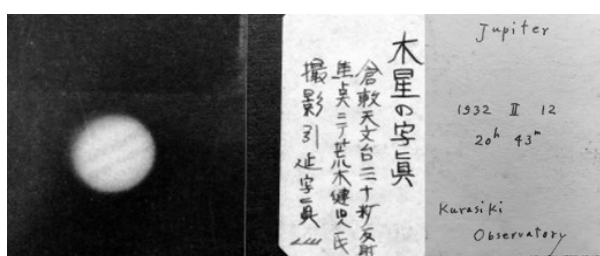 木星の写眞
倉敷天文台三十 反射
焦点ニテ荒木健児氏
撮影引延写眞
Jupiter
1932 II 12
20h 43m
Kurasiki
Observatory